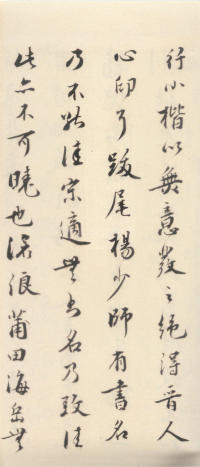 行小楷以無意發之絕得晋人
心印耳跋尾楊少師有書名
乃不能佳宗適無書名乃致佳
此亦不可曉也滄浪莆田海岳無